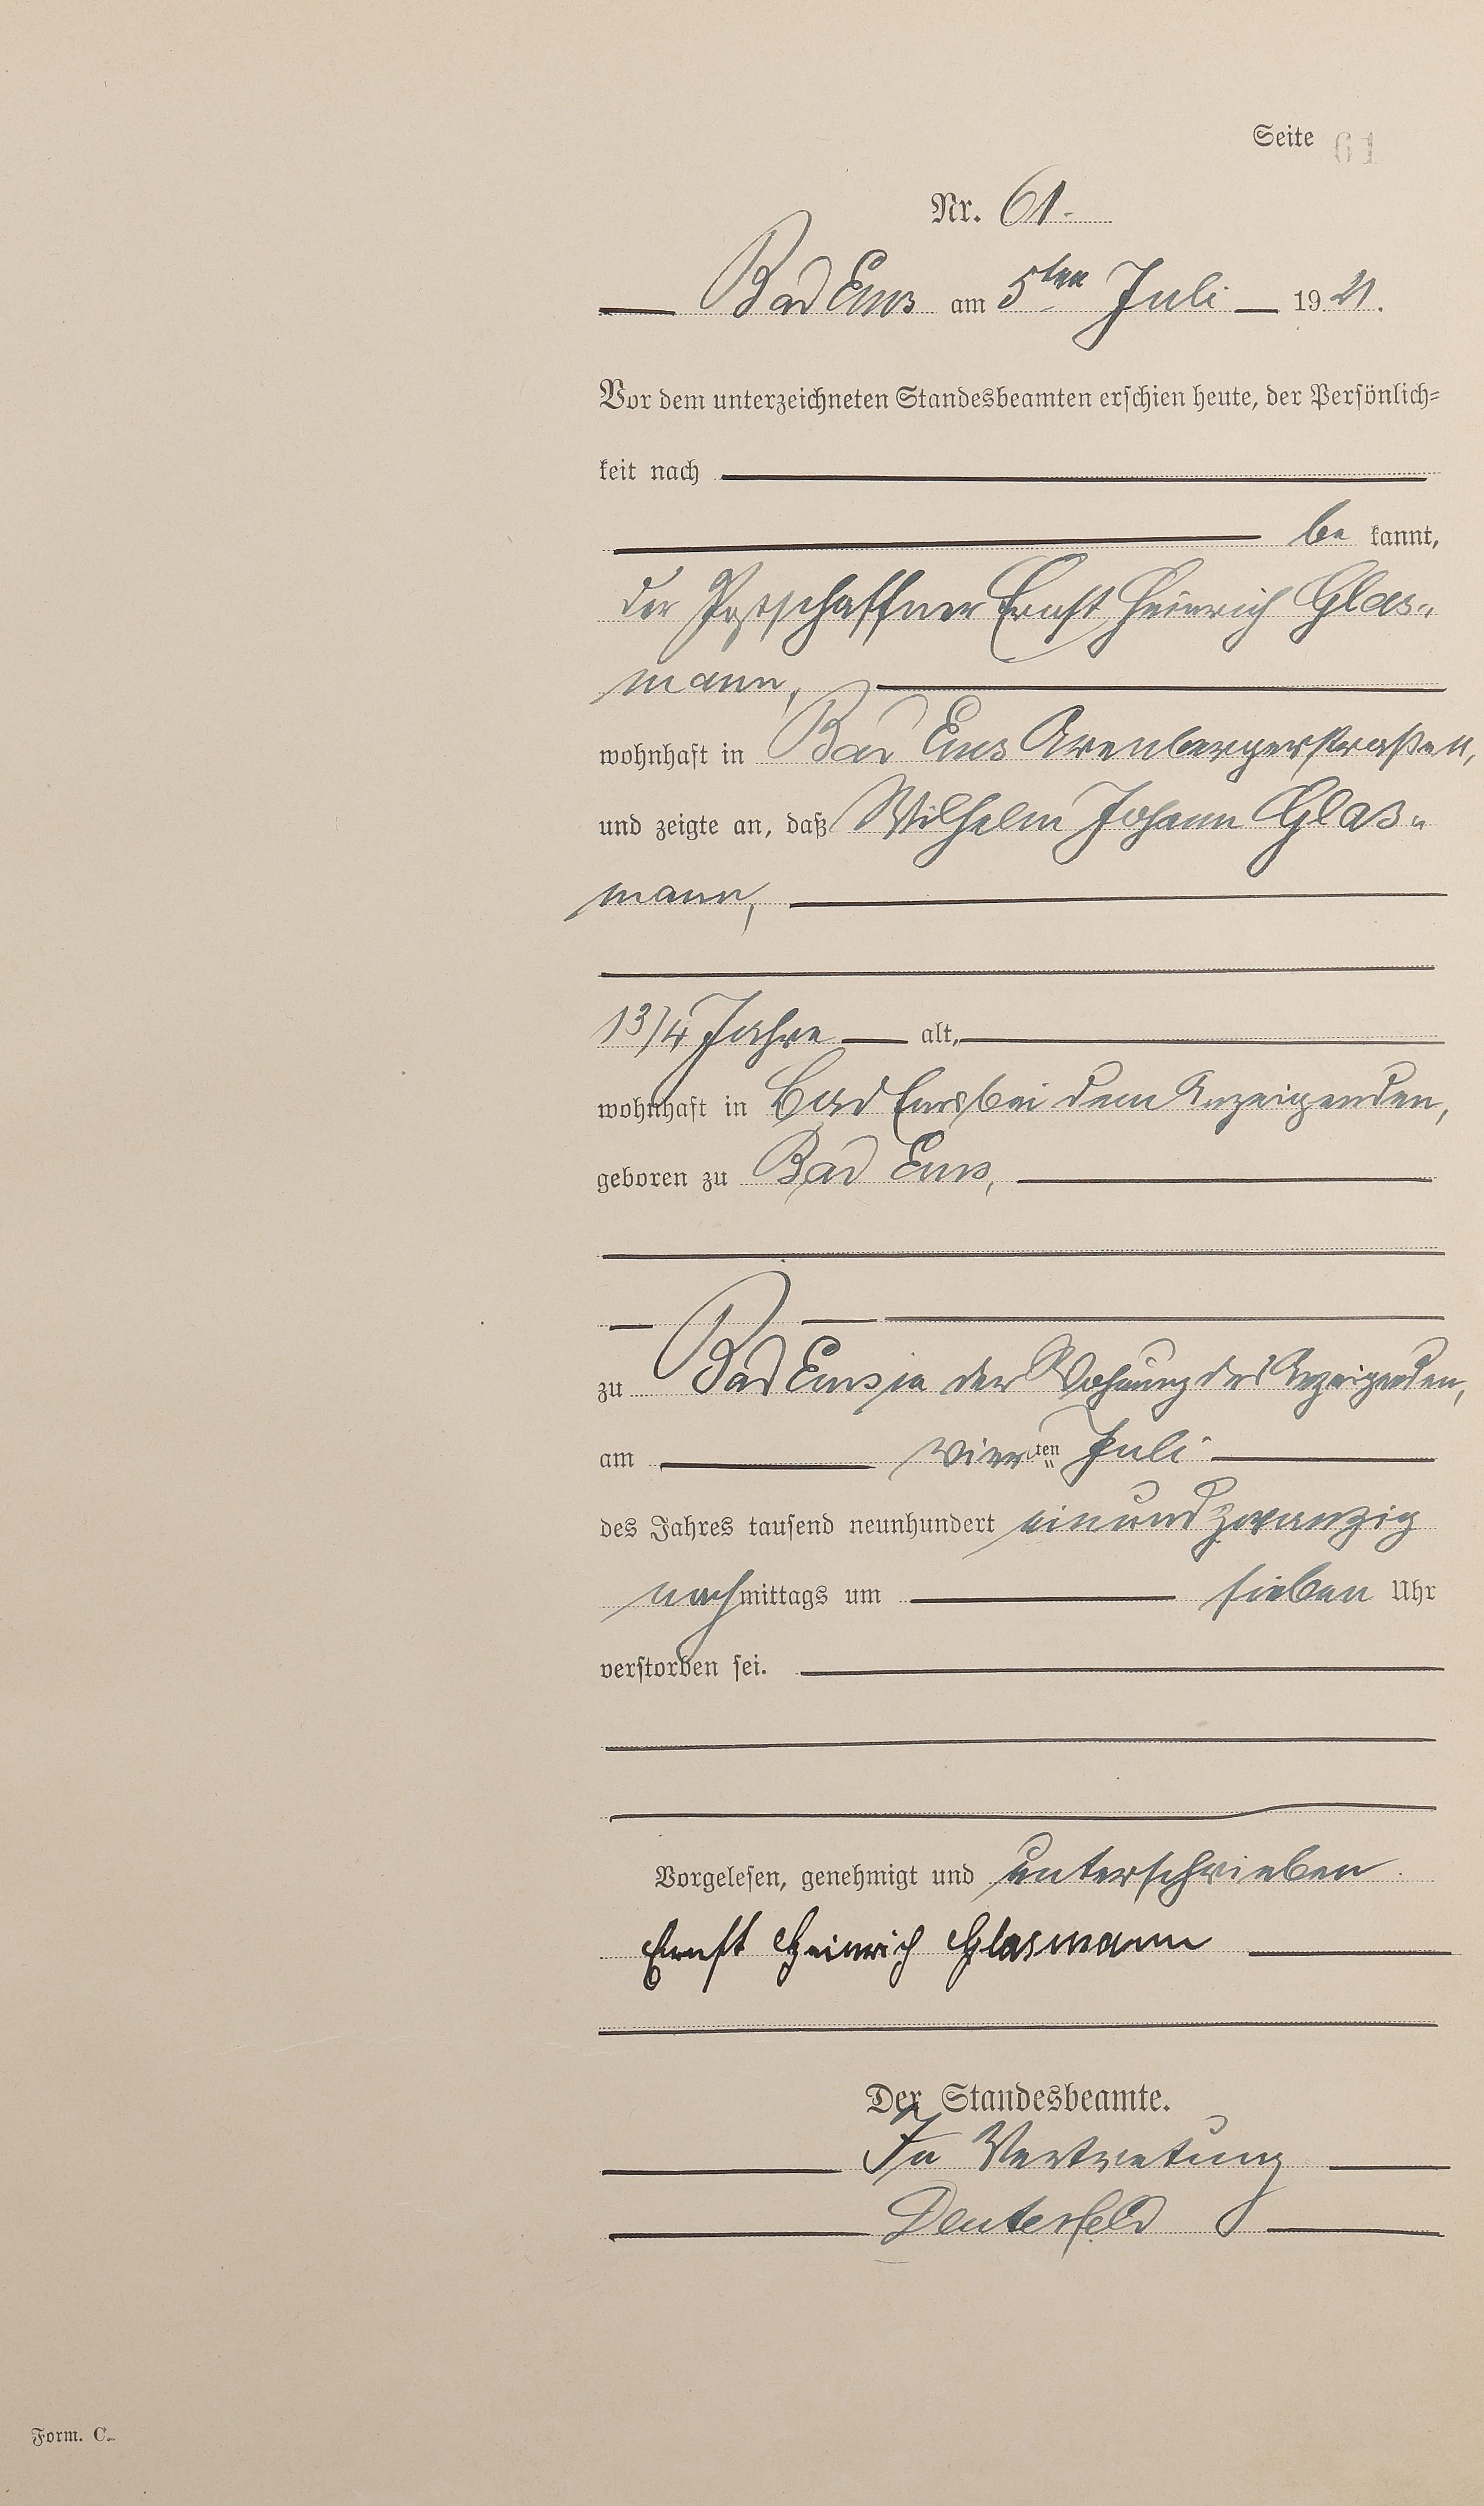 Seite 61
Nr. 61.
Bad Ems am 5ten Juli 1921.
Vor dem unterzeichneten Standesbeamten erschien heute, der Persönlich-
keit nach
be kannt,
der Postschaffner Ernst Heinrich Glas-
mann,
wohnhaft in Bad Ems Arenbergerstraßen,
und zeigte an, daß Wilhelm Johann Glas-
mann,
1 3/4 Jahre alt,
wohnhaft in Bad Ems bei dem Anzeigenden,
geboren zu Bad Ems,
zu Bad Ems in der Wohnung des Anzeigenden,
am vierten Juli
des Jahres tausend neunhundert einundzwanzig
nachmittags um sieben Uhr
verstorben sei.
Vorgelesen, genehmigt und unterschrieben
Ernst Heinrich Glasmann
Der Standesbeamte.
In Vertretung
Form. C.